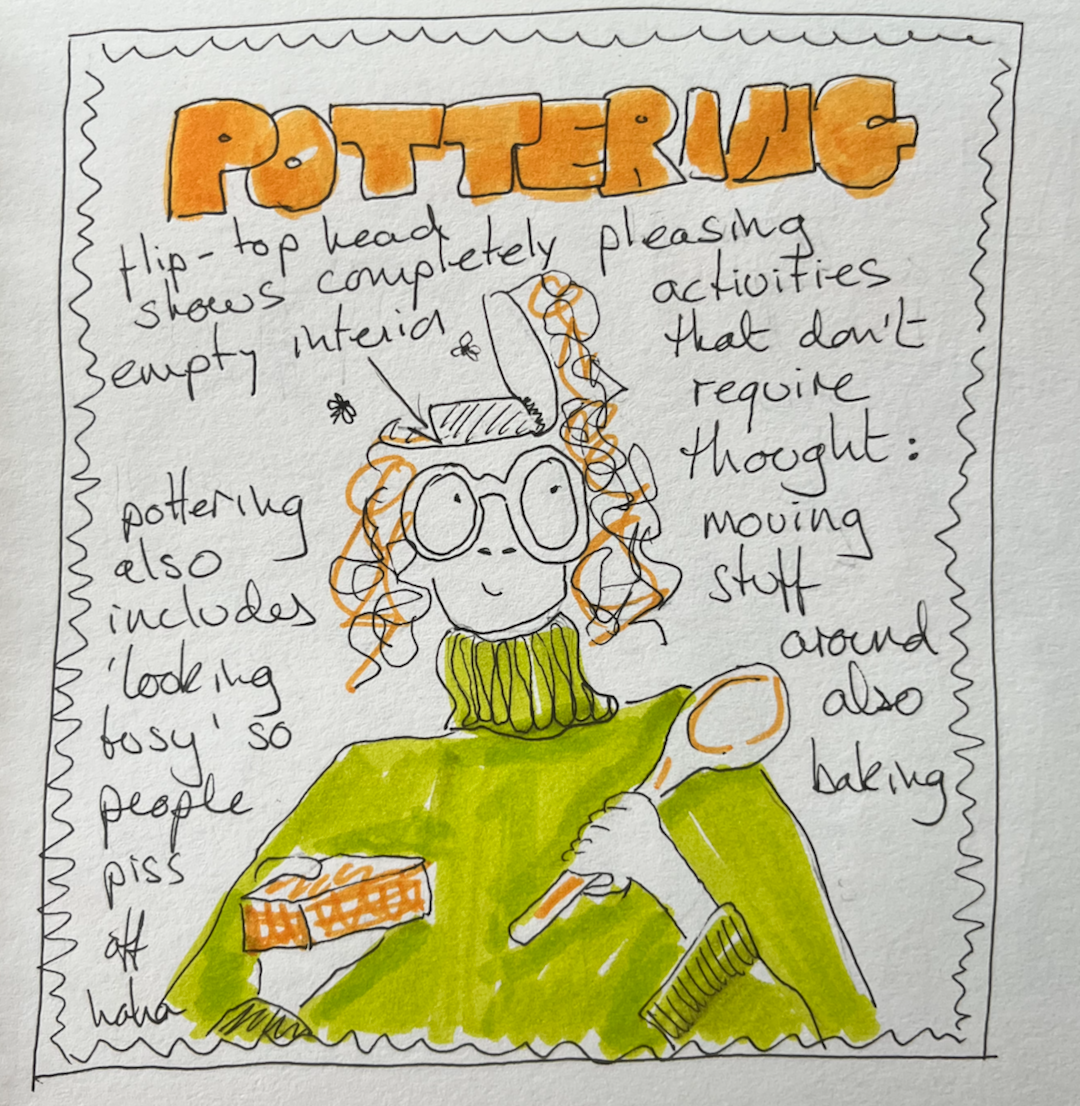 POTTERING
flip-top head
shows completely
empty interior
pleasing
activities
that don't
require
thought:
moving
stuff
around
also
baking
pottering
also
includes
'looking
busy' so
people
piss
off
haha